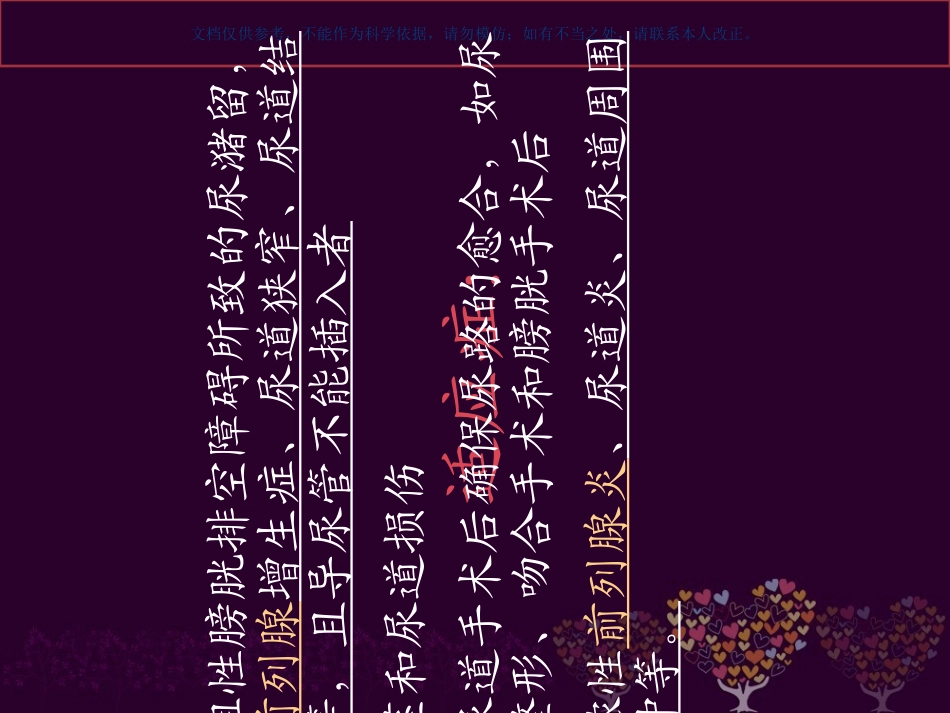 文档仅供参考，不能作为科学依据，请勿模仿；如有不当之处，请联系本人改正。
适应症：
性膀胱排空障碍所致的尿潴留，
列腺增生症、尿道狭窄、尿道结
，且导尿管不能插入者
和尿道损伤
道手术后确保尿路的愈合，如尿
形、吻合手术和膀胱手术后
性前列腺炎、尿道炎、尿道周围
等。